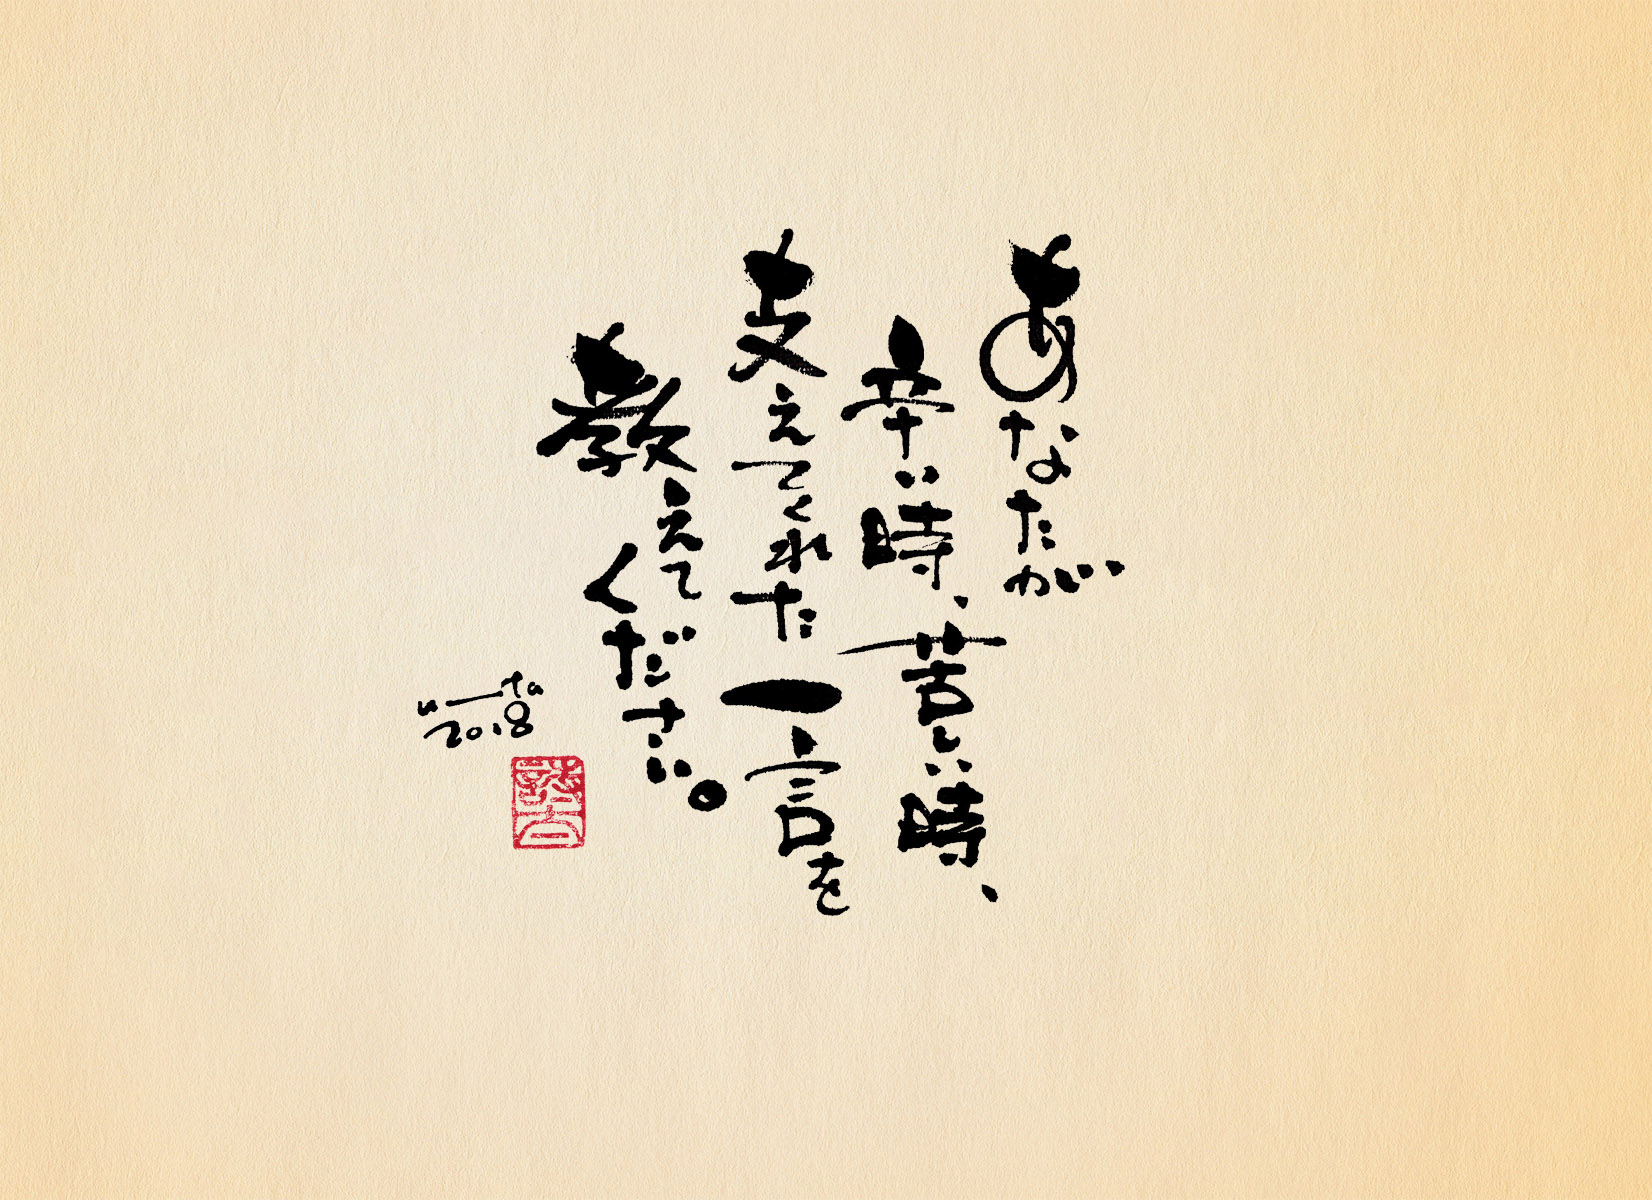 あなたが
辛い時、苦しい時、
支えてくれた一言を
教えてください。
u—ta
2018